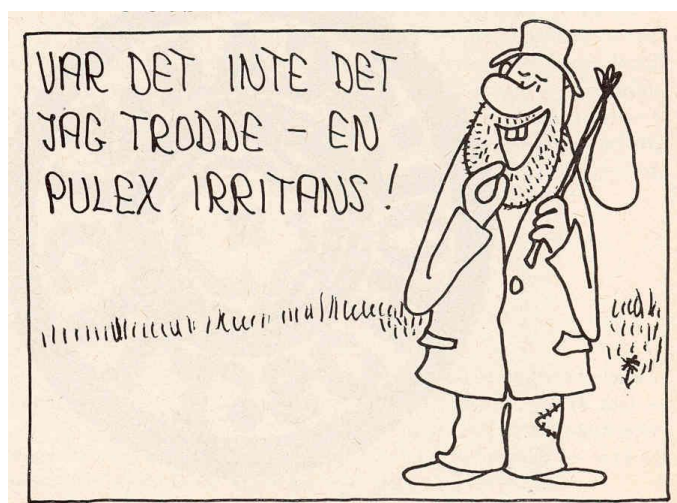 VAR DET INTE DET
JAG TRODDE – EN
PULEX IRRITANS!